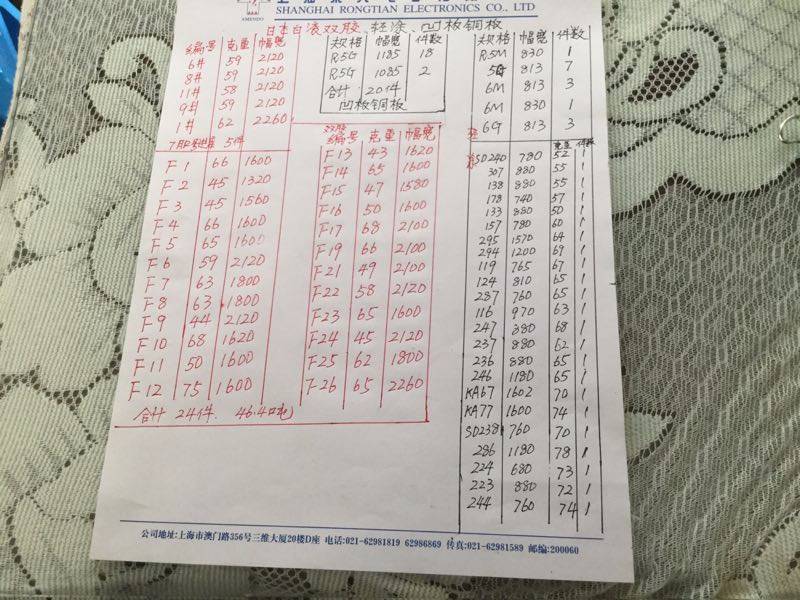 SHANGHAI RONGTIAN ELECTRONICS CO., LTD
AMENDO
日本白液双胶、轻涂、凹板铜板
编号 克重 幅宽
6# 59 2120
8# 59 2120
11# 58 2120
9# 59 2120
1# 62 2260
5件
规格 幅宽 件数
R5G 1185 18
R5G 1085 2
合计 20件
凹板铜板
规格 幅宽 件数
R5M 830 1
5G 813 7
6M 813 3
6M 830 1
6G 813 3
F1 66 1600
F2 45 1320
F3 45 1560
F4 66 1600
F5 65 1600
F6 59 2120
F7 63 1800
F8 63 1800
F9 44 2120
F10 68 1620
F11 50 1600
F12 75 1600
合计 24件. 46.4吨
双胶
编号 克重 幅宽
F13 43 1620
F14 65 1600
F15 47 1580
F16 50 1600
F17 68 2100
F19 66 2100
F21 49 2100
F22 58 2120
F23 65 1600
F24 45 2120
F25 62 1800
F26 65 2260
克重 件数
SD240 780 52 1
307 880 55 1
138 880 55 1
178 740 57 1
133 880 50 1
157 780 60 1
295 1570 64 1
294 1200 69 1
119 765 67 1
124 810 65 1
287 760 65 1
116 970 63 1
247 880 68 1
237 880 62 1
236 880 65 1
246 1180 65 1
KA67 1602 70 1
KA77 1600 74 1
SD238 760 70 1
286 1180 78 1
224 680 73 1
223 880 72 1
244 760 74 1
公司地址:上海市澳门路356号三维大厦20楼D座 电话:021-62981819 62986869 传真:021-62981589 邮编:200060